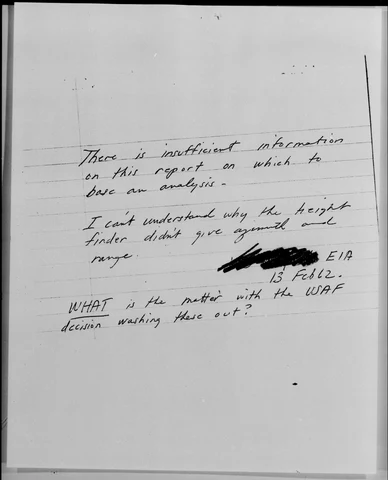 There is insufficient information
on this report on which to
base an analysis.
I can't understand why the height
finder didn't give azimuth and
range.
E1A
13 Feb 62.
WHAT is the matter with the USAF
decision washing these out?